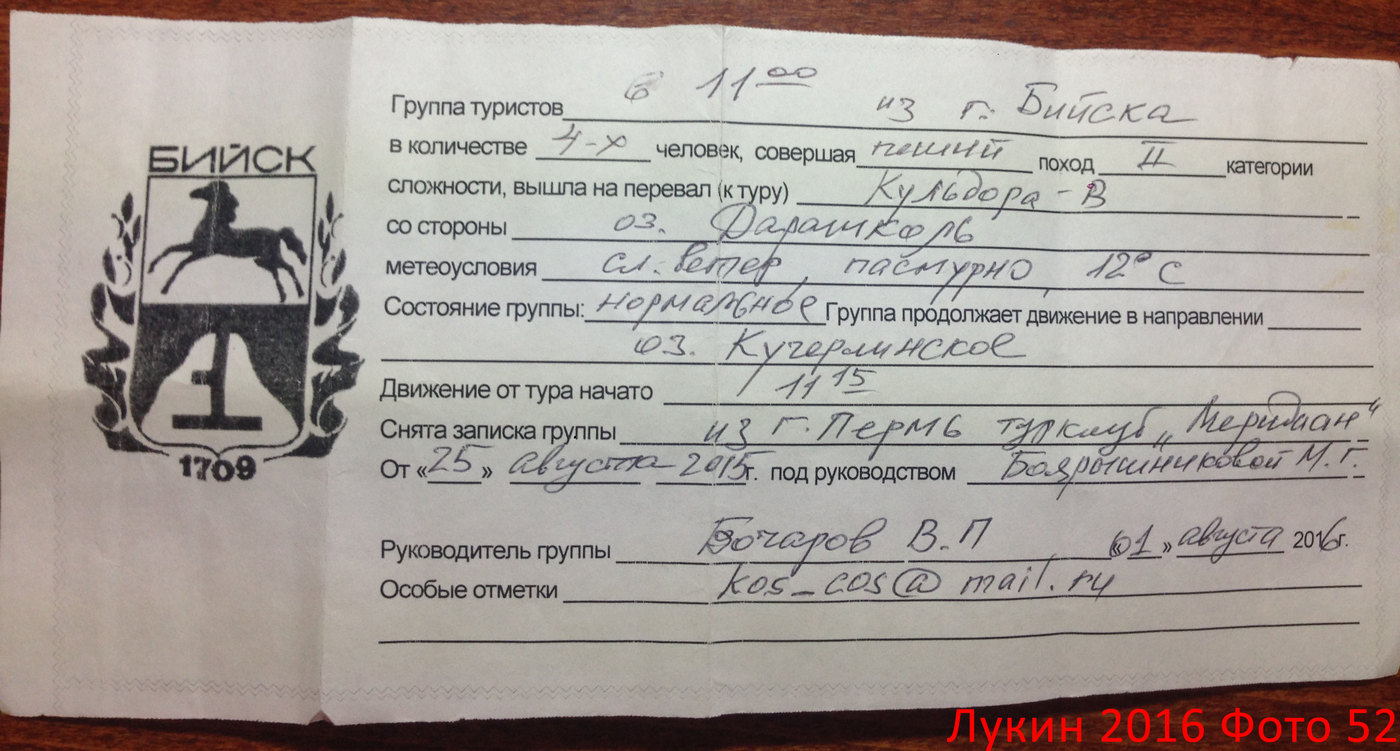 БИЙСК
1709
Группа туристов в 11⁰⁰ из г. Бийска
в количестве 4-х человек, совершая пеший поход II категории
сложности, вышла на перевал (к туру) Кульдора-В
со стороны оз. Дарашколь
метеоусловия сл. ветер, пасмурно, 12° С
Состояние группы: нормальное Группа продолжает движение в направлении
оз. Кучерлинское
Движение от тура начато 11¹⁵
Снята записка группы из г. Пермь турклуб „Меридиан"
От «25» августа 2015г. под руководством Боярышниковой М.Г.
Руководитель группы Бочаров В.П «01» августа 2016г.
Особые отметки kos_cos@mail.ru
Лукин 2016 Фото 52